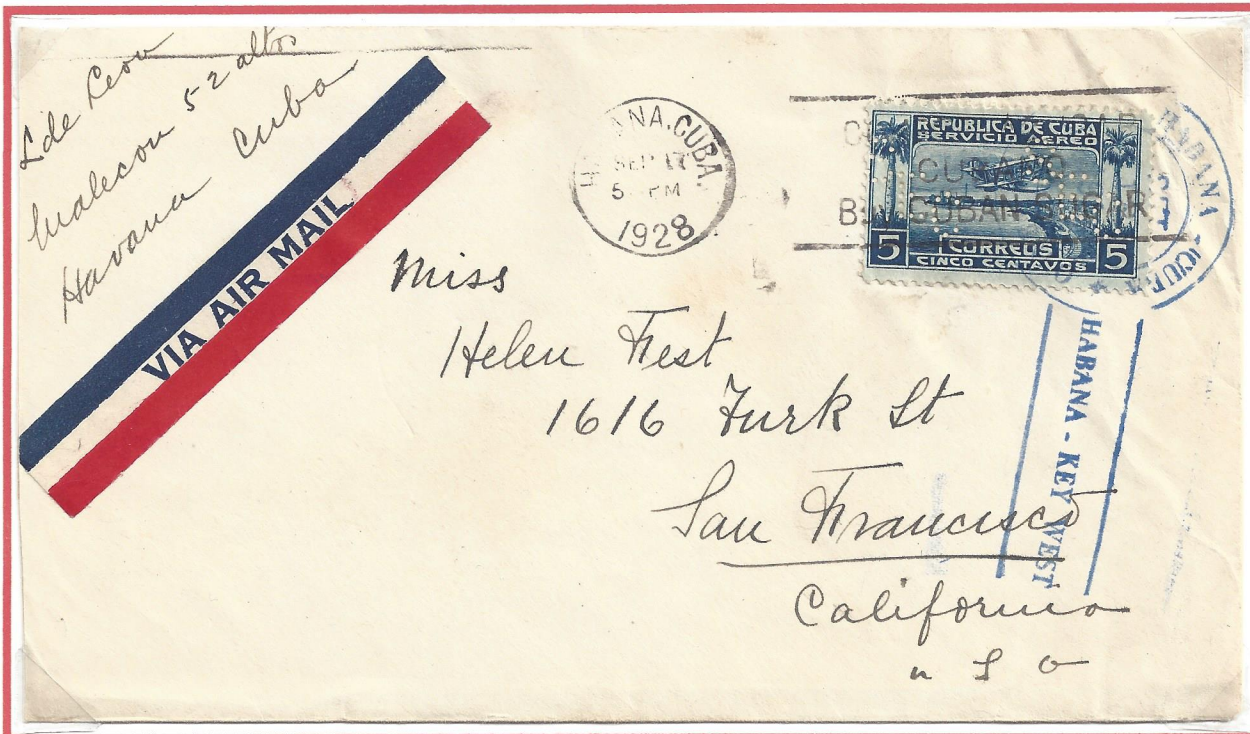 L de Leon
Malecon 52 altos
Havana Cuba
VIA AIR MAIL
HABANA, CUBA.
SEP 17
5 PM
1928
REPUBLICA DE CUBA
SERVICIO AEREO
CUBANO
BUY CUBAN SUGAR
5 CORREOS 5
CINCO CENTAVOS
HABANA - KEY WEST
Miss
Helen Fest
1616 Turk St
San Francisco
California
U S A